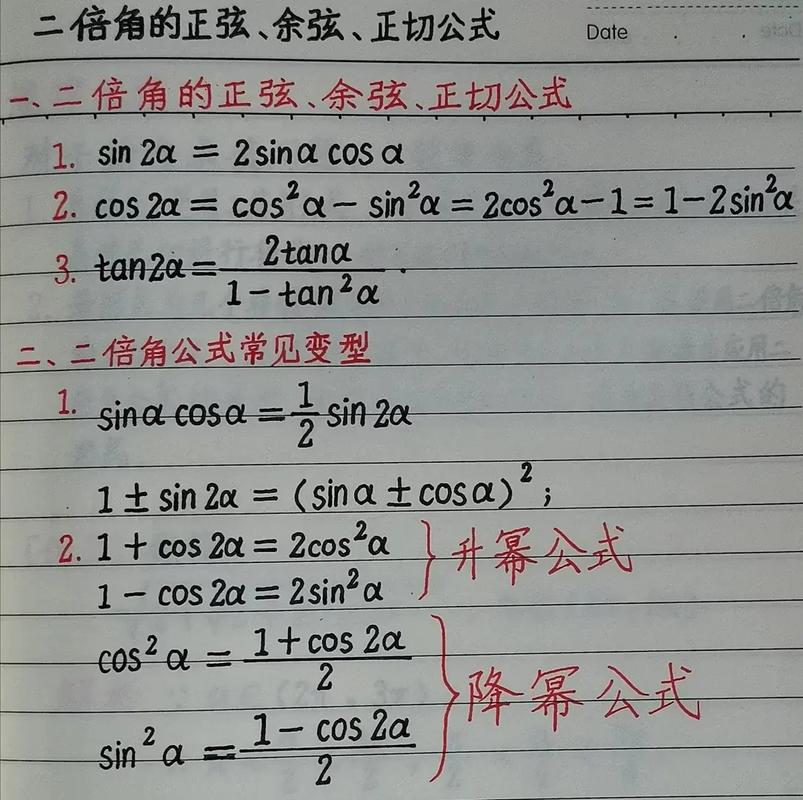 二倍角的正弦、余弦、正切公式
Date . .
一、二倍角的正弦、余弦、正切公式
1. sin 2α = 2 sin α cos α
2. cos 2α = cos²α − sin²α = 2cos²α − 1 = 1 − 2 sin²α
3. tan2α = 2tanα / (1 − tan²α) .
二、二倍角公式常见变型
1. sinα cosα = 1/2 sin 2α
1 ± sin 2α = (sin α ± cos α)² ;
2. 1 + cos 2α = 2cos²α
1 − cos 2α = 2 sin²α
升幂公式
cos²α = (1 + cos 2α) / 2
sin²α = (1 − cos 2α) / 2
降幂公式